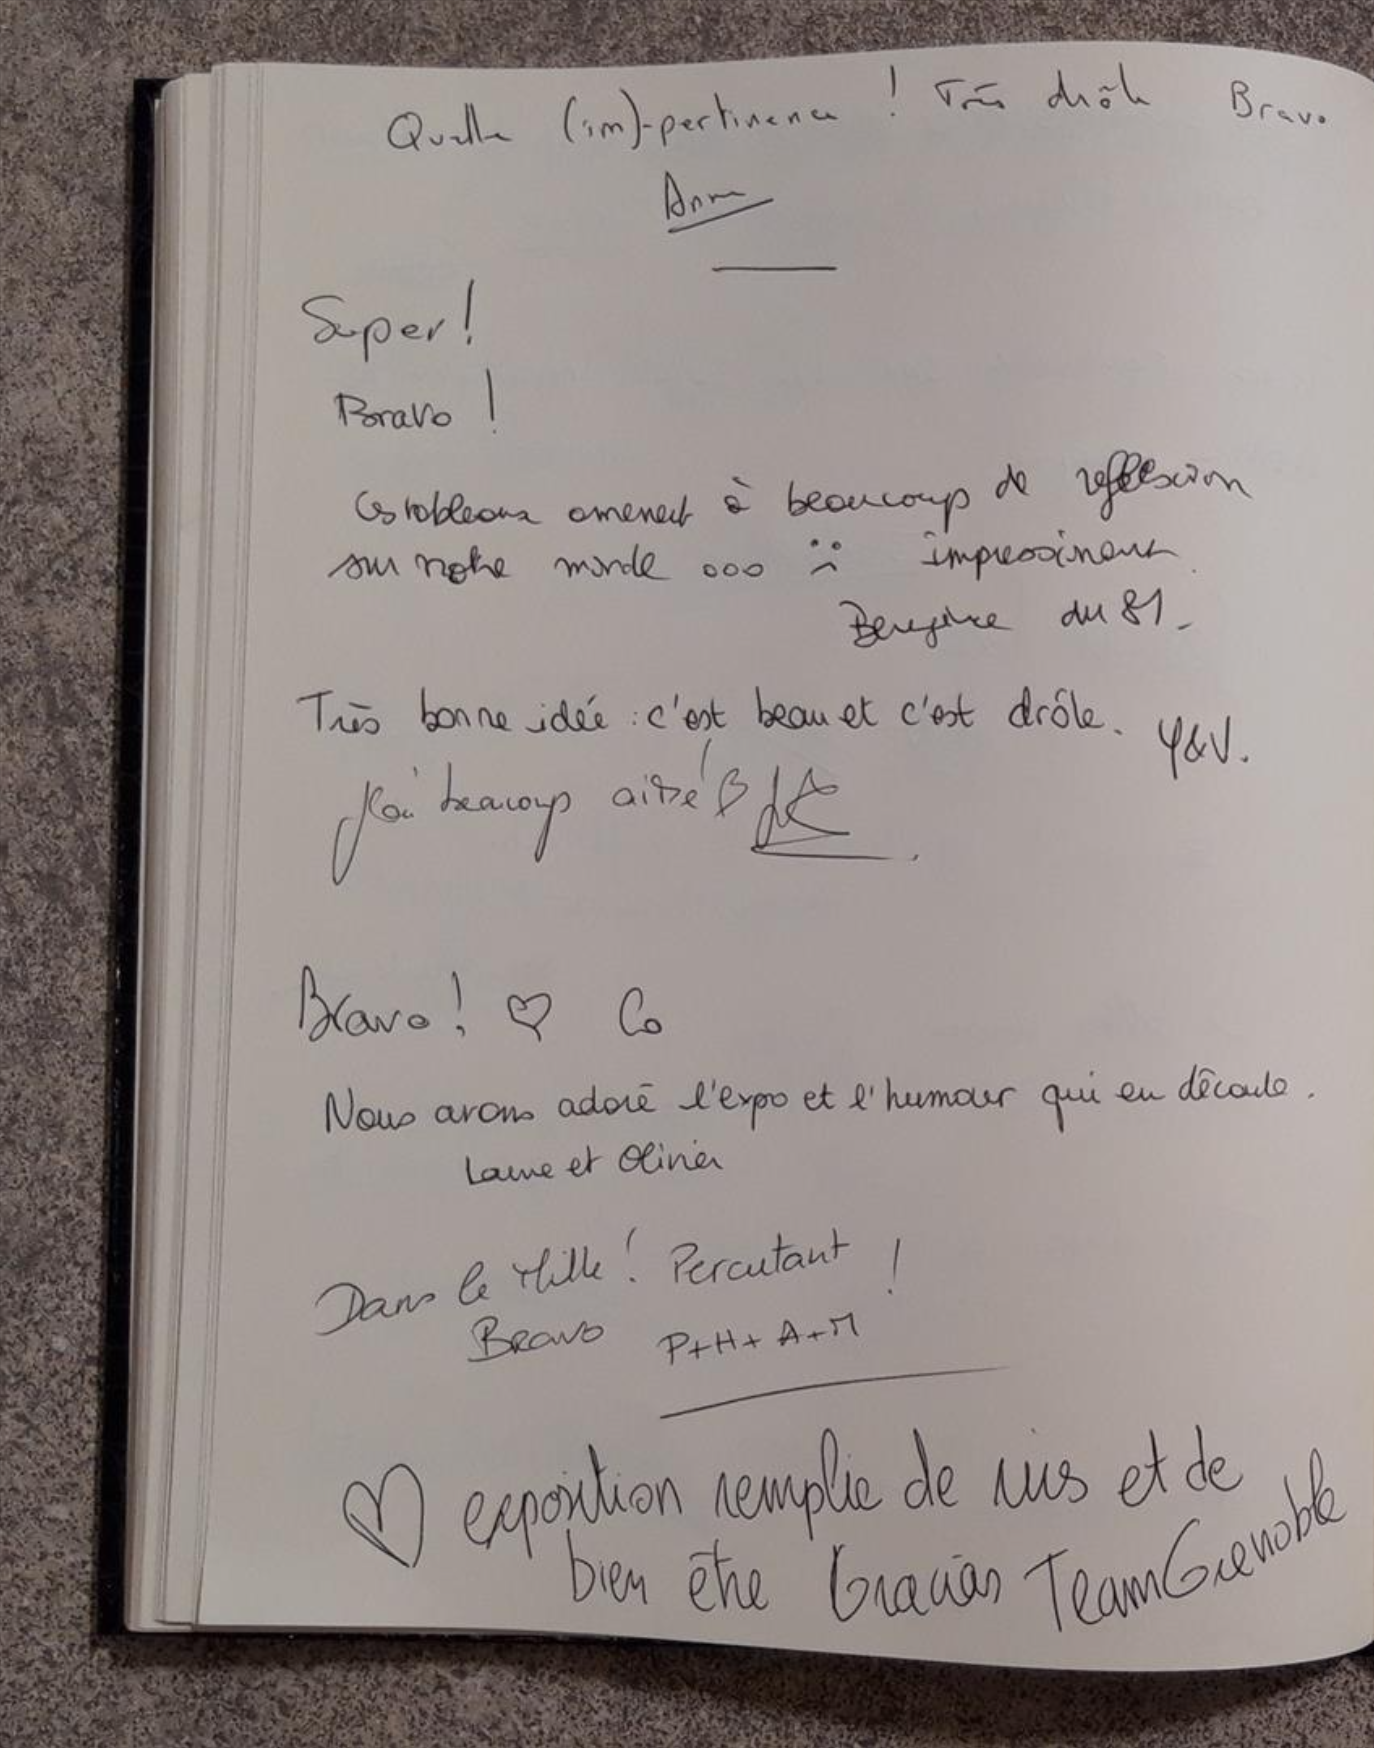 Quelle (im)-pertinence ! Très drôle Bravo
Anne
Super!
Bravo !
Ces tableaux amenent à beaucoup de reflexion
sur notre monde ooo
du 81-
Très bonne idée : c'est beau et c'est drôle. Y&V.
J'ai beaucoup
Bravo! ♡ Co
Nous avons adoré l'expo et l'humour qui en découle.
Laure et Olivier
Dans le Mille! Percutant !
Bravo P+H+A+M
♡ exposition remplie de rires et de
bien être Gracias TeamGrenoble